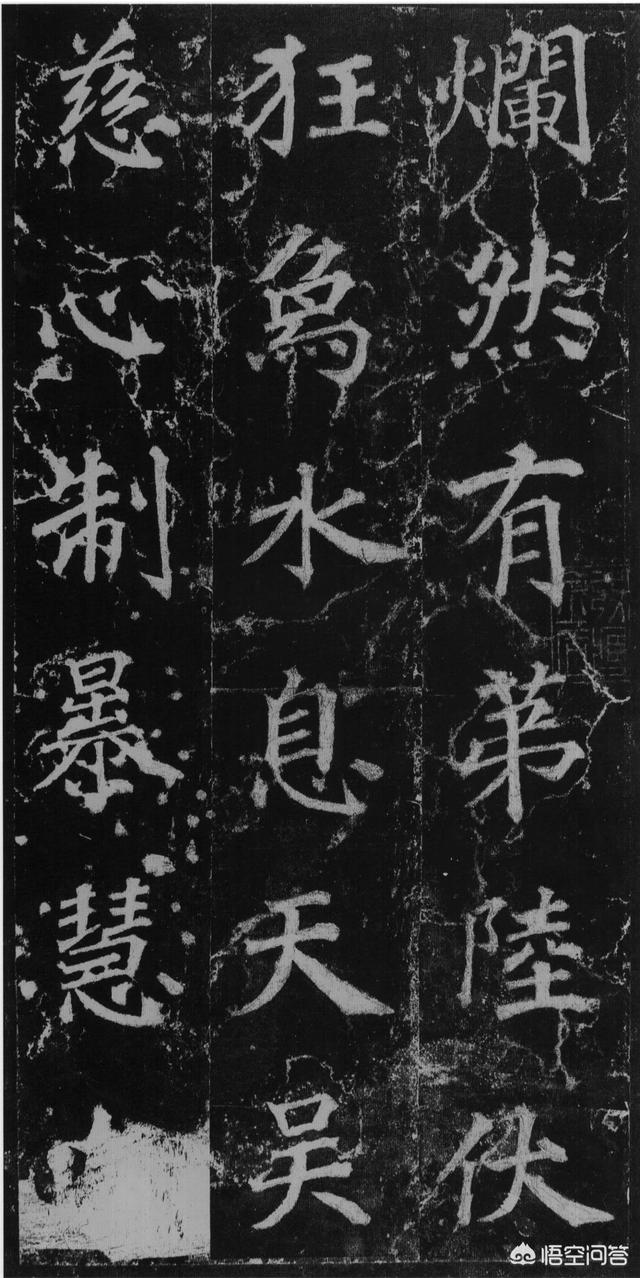 爛然有苐陸伏
狂象水息天吳
慈心制暴慧
悟空问答